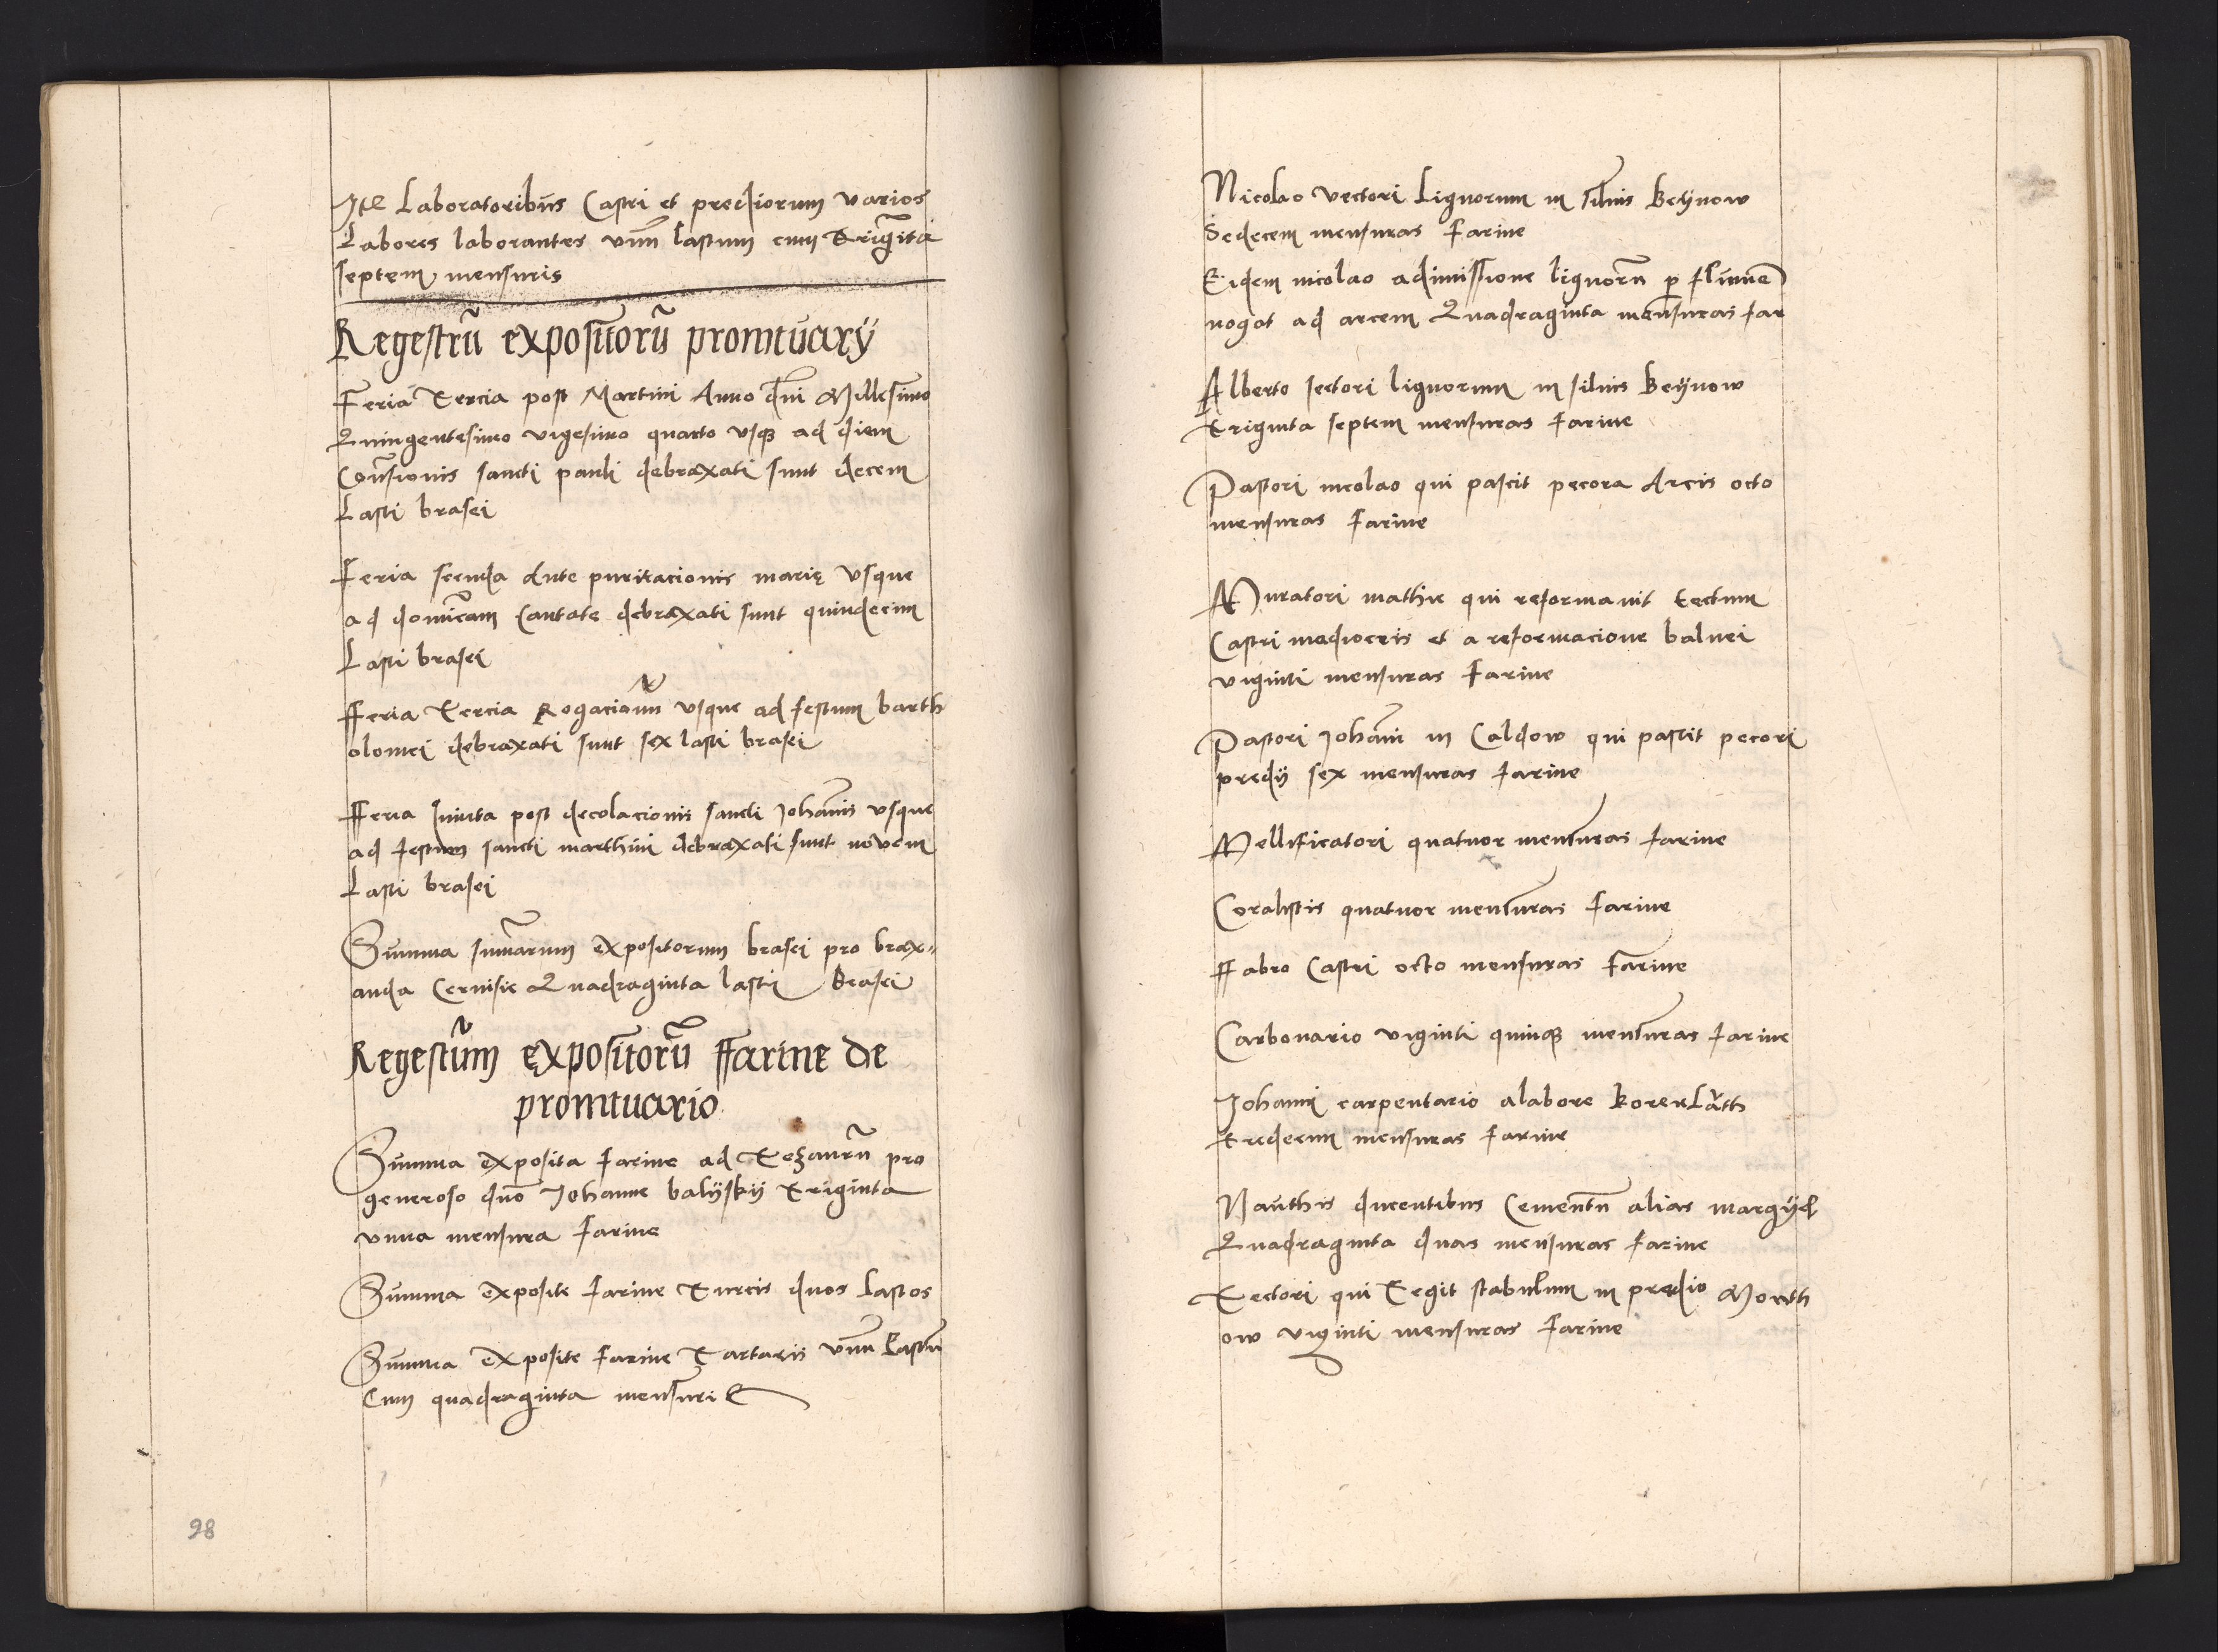 Itē Laboratoribus Castri et prediorum varios
Labores laborantes vnū lastum cum trigīta
septem mensuris
Regestrū expositorū promtuarÿ
Feria Tercia post Martini Anno dni Millesimo
Quingentesimo vigesimo quarto vsq ad diem
Conūsionis sancti pauli debraxati sunt decem
Lasti brasei
Feria scunda Ante purificacionis marię Vsque
ad domīcam Cantate debraxati sunt quindecim
Lasti brasei
Fferia Tercia Rogacionū vsque ad festum barth
olomei debraxati sunt sex lasti brasei
Fferia Quinta post decolacionis sancti Johānis vsque
ad festum sancti marthini debraxati sunt novem
Lasti brasei
Summa sumārum expositorum brasei pro brax=
anda Ceruisie Quadraginta lasti Brasei
Regestrūm expositorū ffarine de
promtuario
Summa exposita farine ad Tezaurū pro
generoso dno Johanne balÿskÿ Triginta
vnna mensura farine
Summa exposite farine Turcis duos Lastos
Summa exposite farine Tartaris vnū Lastū
Cum quadraginta mensuris
Nicolao vectori Lignorum in siluis Beÿnow
Sedecem mensuras farine
Eidem nicolao adimissione lignorū p flumē
nogat ad arcem Quadraginta mensuras far
Alberto sectori lignorum in siluis Beÿnow
Triginta septem mensuras farine
Pastori nicolao qui pascit pecora Arcis octo
mensuras farine
Muratori mathie qui reformauit tectum
Castri mediocris et a reformacione balnei
viginti mensuras farine
Pastori Johanni in Caldow qui pascit pecori
predÿ sex mensuras farine
Mellificatori quatuor mensuras farine
Coralistis quatuor mensuras farine
Ffabro Castri octo mensuras farine
Carbonario viginti quinq mensuras farine
Johanni carpentario alabore korenlath
tredecim mensuras farine
Nauthis ducentibus Cementū alias margÿel
Quadraginta duas mensuras farine
Tectori qui Tegit stabulum in predio Month
ow viginti mensuras farine
98